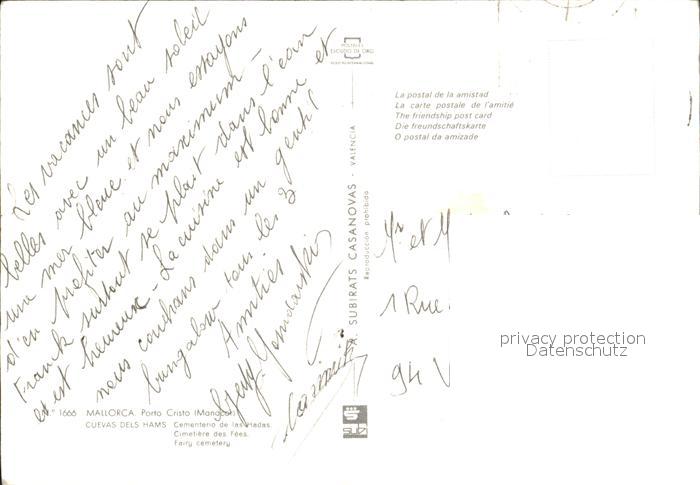 Les vacances sont
belles avec un beau soleil
une mer bleue et nous essayons
d'en profiter au maximum -
Franck surtout se plait dans l'eau
et est heureux - La cuisine est bonne et
nous couchons dans un gentil
bungalow tous les 3
Amitiés
N.º 1666 MALLORCA. Porto Cristo (Manacor)
CUEVAS DELS HAMS Cementerio de las Hadas.
Cimetière des Fées.
Fairy cemetery.
POSTALES
ESCUDO DE ORO
SUBIRATS CASANOVAS - VALENCIA
Reproducción prohibida
La postal de la amistad
La carte postale de l'amitié
The friendship post card
Die freundschaftskarte
O postal da amizade
Mr et M
1 Rue
94 V
privacy protection
Datenschutz